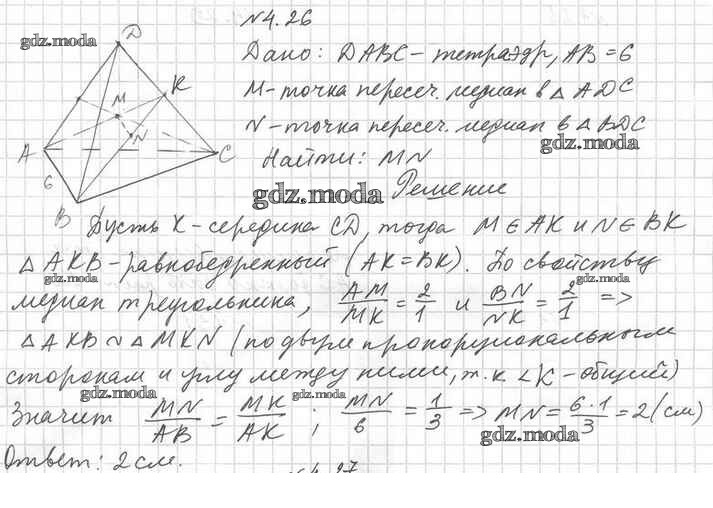 №4.26
gdz.moda
D
Дано: DABC – тетраэдр, AB = 6
K
M – точка пересеч. медиан в △ ADC
M
N – точка пересеч. медиан в △ BDC
N
gdz.moda
A
C
Найти: MN
6
gdz.moda
Решение
B
Пусть K – середина CD, тогда M ∈ AK и N ∈ BK
△ AKB – равнобедренный (AK = BK). По свойству
gdz.moda
gdz.moda
медиан треугольника, AM/MK = 2/1 и BN/NK = 2/1 =>
△ AKB ~ △ MKN (по двум пропорциональным
сторонам и углу между ними, т.к ∠K – общий)
gdz.moda
gdz.moda
Значит MN/AB = MK/AK ; MN/6 = 1/3 => MN = 6·1/3 = 2 (см)
gdz.moda
Ответ: 2 см.
№4.27